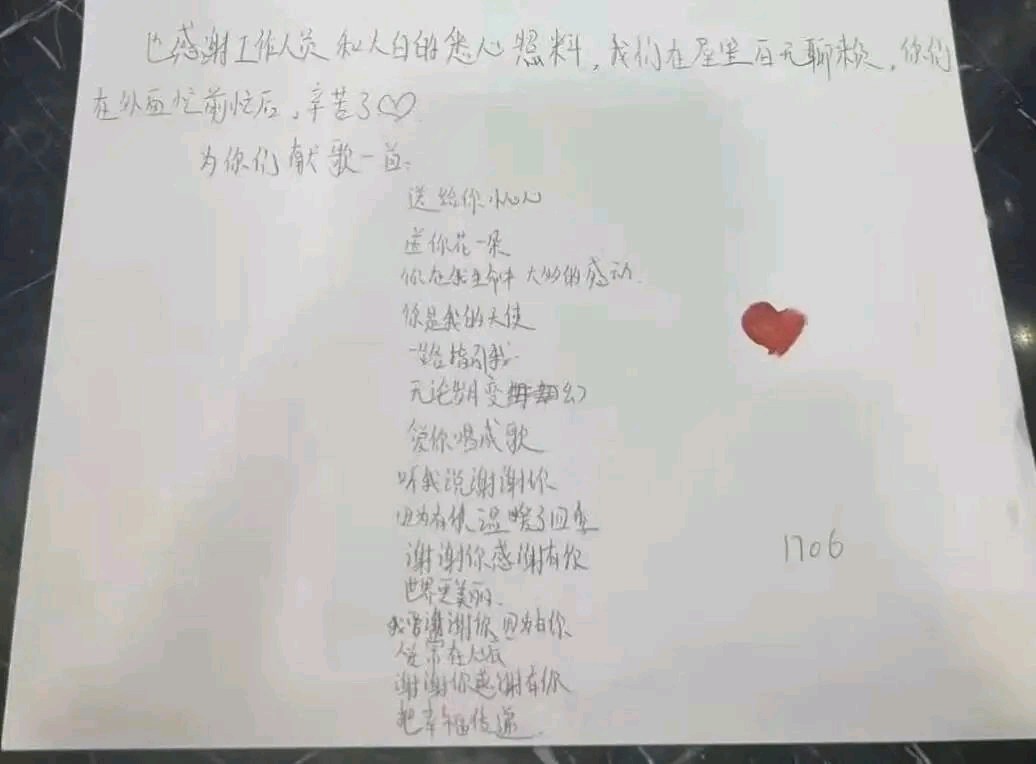 也感谢工作人员和大白的悉心照料，我们在屋里百无聊赖，你们
在外面忙前忙后，辛苦了♡
为你们献歌一首：
送给你小心心
送你花一朵
你在我生命中 太多的感动
你是我的天使
一路指引我
无论岁月变幻
爱你唱成歌
听我说谢谢你
因为有你 温暖了四季
谢谢你感谢有你
世界更美丽
我要谢谢你 因为有你
爱常在心底
谢谢你感谢有你
把幸福传递
1706